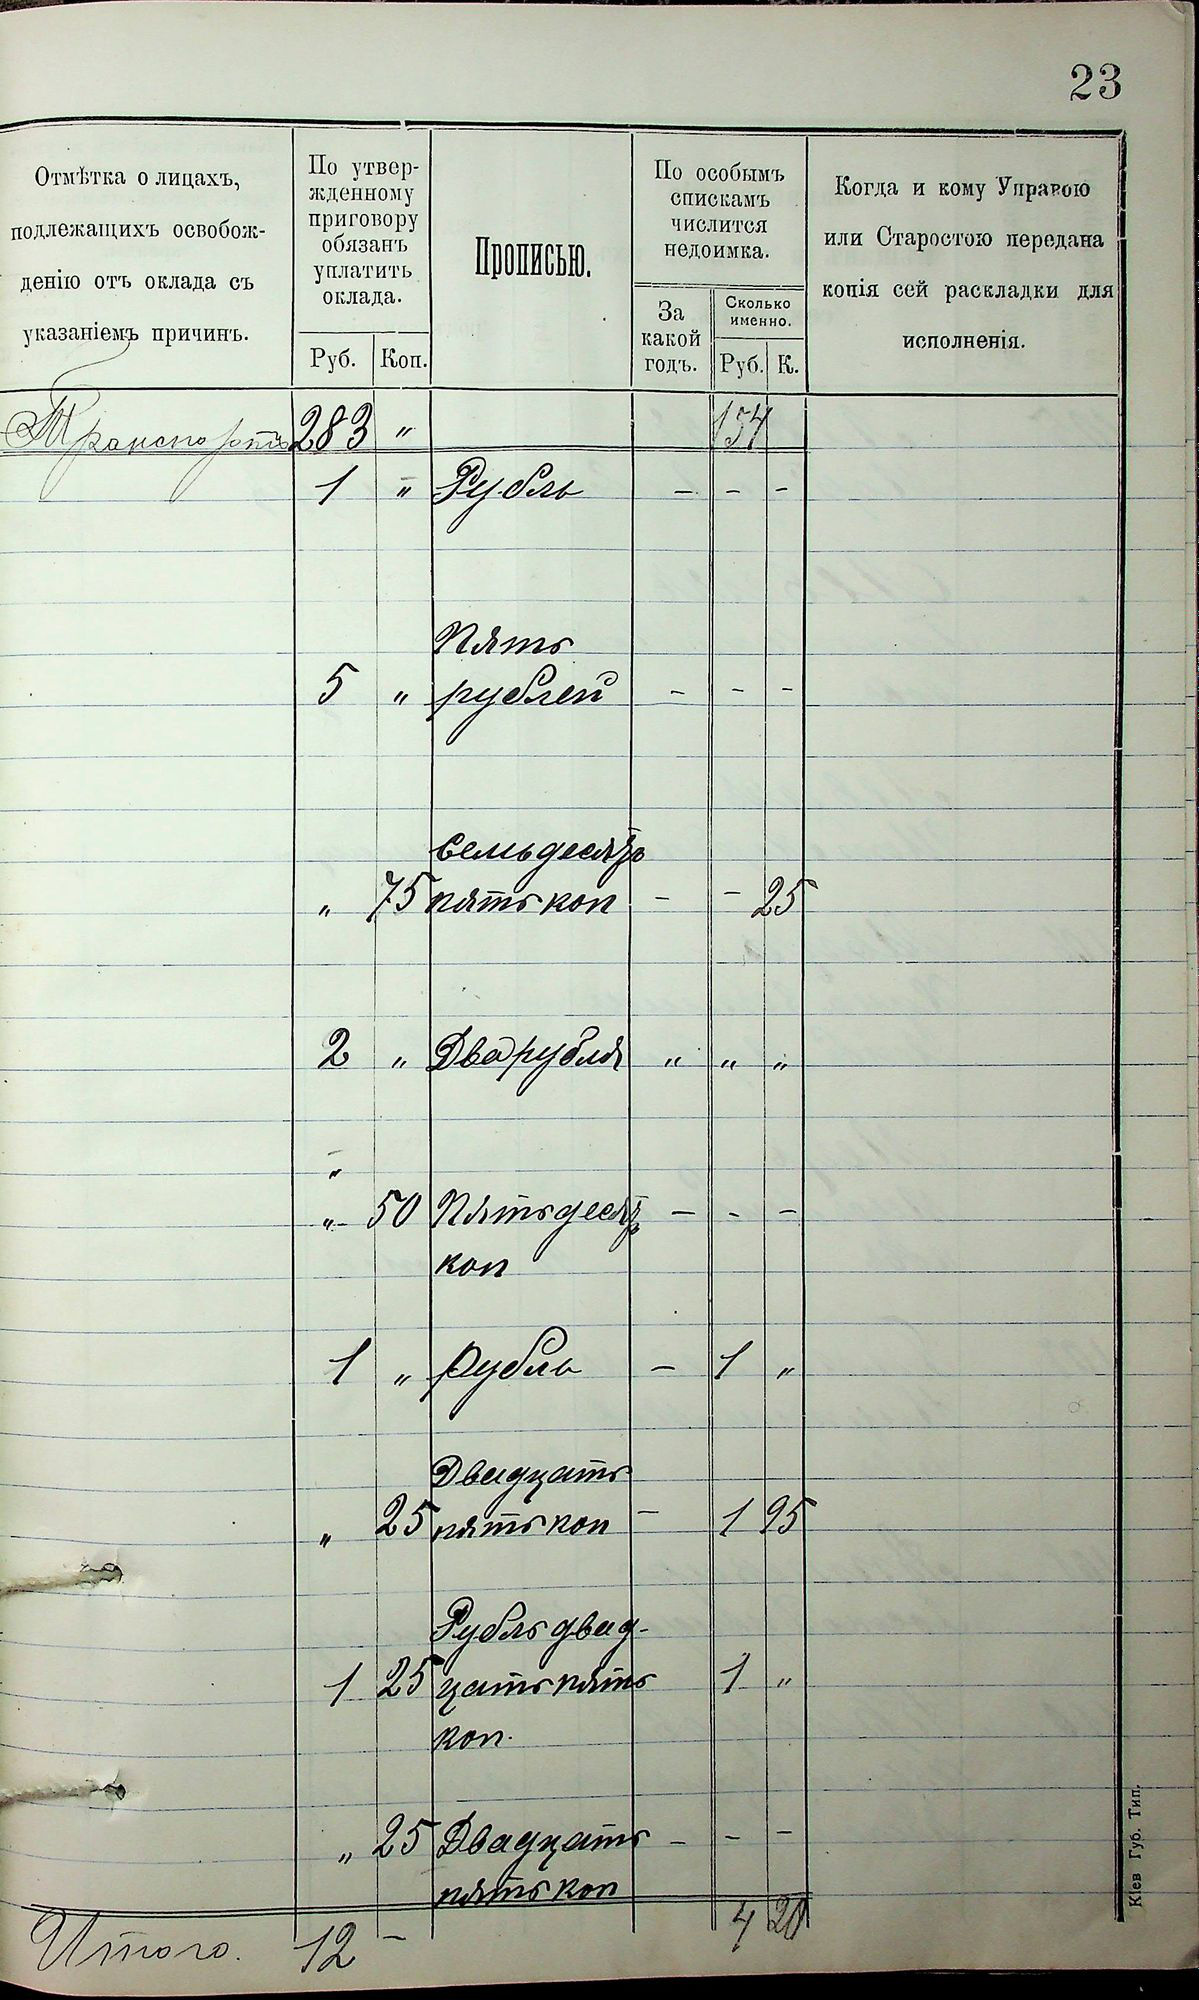 23
Отмѣтка о лицахъ,
подлежащихъ освобож-
денію отъ оклада съ
указаніемъ причинъ.
По утвер-
жденному
приговору
обязанъ
уплатить
оклада.
Руб. Коп.
Прописью.
По особымъ
спискамъ
числится
недоимка.
За
какой
годъ.
Сколько
именно.
Руб. К.
Когда и кому Управою
или Старостою передана
копія сей раскладки для
исполненія.
Транспортъ 283 „ 154
1 „ Рубль - - -
Пять
5 „ рублей - - -
Семьдесятъ
„ 75 пять коп - - 25
2 „ Два рубля „ „ „
„
„ 50 Пятьдесятъ - - -
коп
1 „ рубль - 1 „
Двадцать
„ 25 пять коп - 1 95
Рубль двад-
1 25 цать пять 1 „
коп.
„ 25 Двадцать - - -
пять коп
Итого. 12 - 4 20
Кіев Губ. Тип.